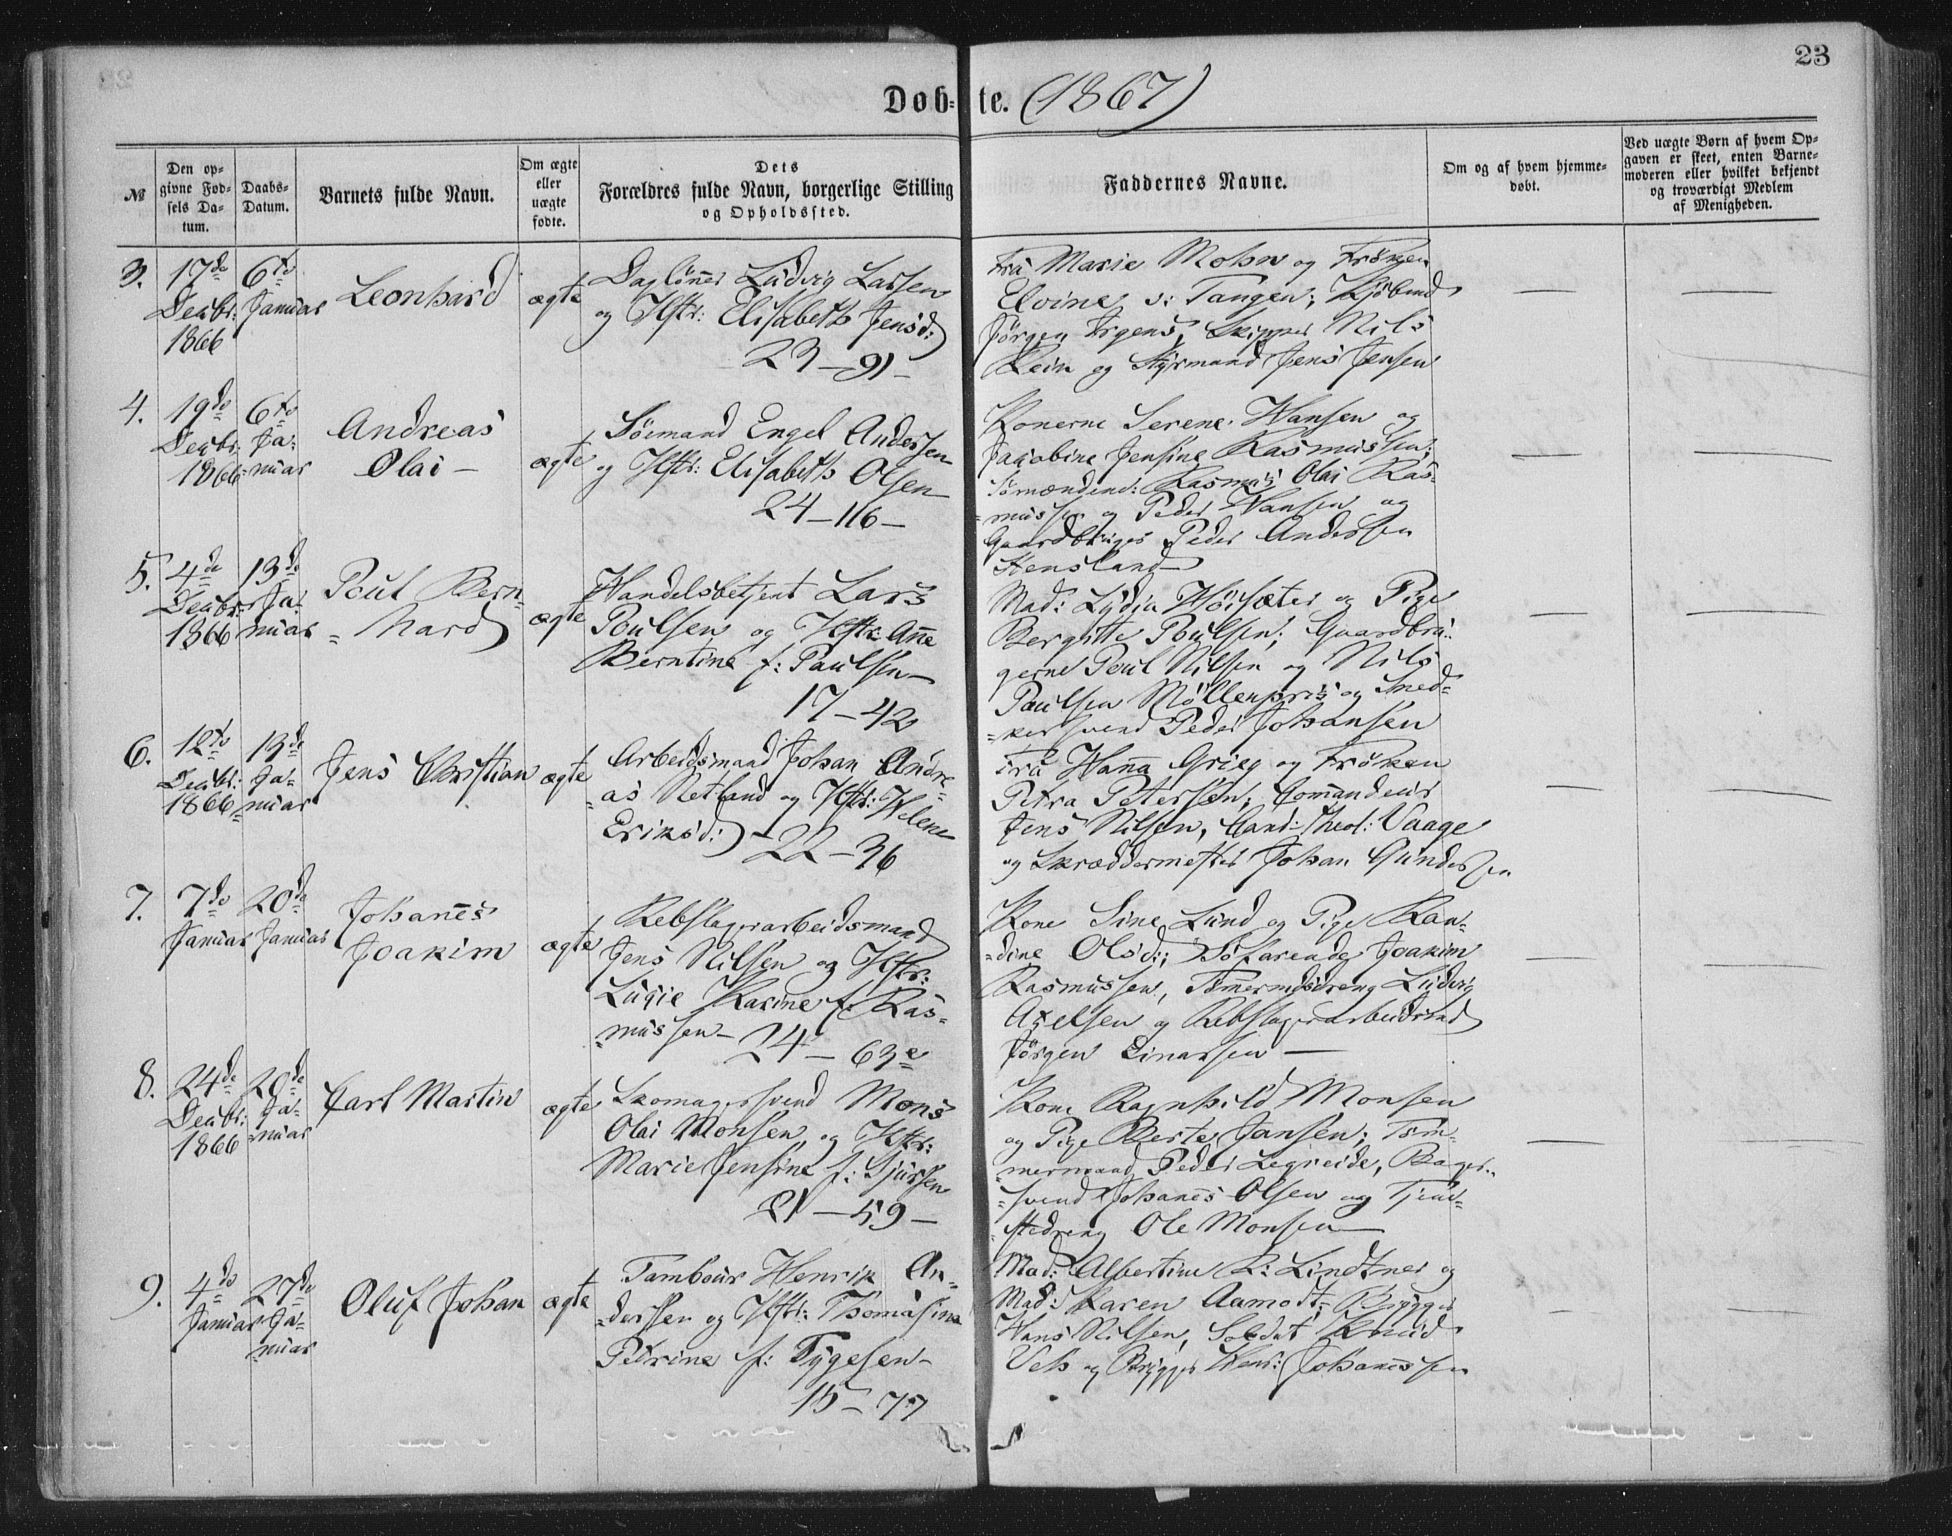 23
Døb- te. (1867)
№
Den op-
givne Fød-
sels Da-
tum.
Daabs-
Datum.
Barnets fulde Navn.
Om ægte
eller
uægte
fødte.
Dets
Forældres fulde Navn, borgerlige Stilling
og Opholdssted.
Faddernes Navne.
Om og af hvem hjemme-
døbt.
Ved uægte Børn af hvem Op-
gaven er skeet, enten Barne-
moderen eller hvilket bekjendt
og troværdigt Medlem
af Menigheden.
3.
17de
Decbr:
1866
6te
Januar
Leonhard
ægte
Daglønner Ludvig Larsen
og Hstr: Elisabeth Jensd:
23-91-
Fru Marie Mohn og Frøken
Elvine v: Tangen; Kjøbmd
Jørgen Irgens, Skipper Nils
Rein og Styrmand Jens Jensen
4.
19de
Decbr:
1866
6te
Ja-
nuar
Andreas
Olai-
ægte
Sømand Engel Andersen
og Hstr: Elisabeth Olsen
24-116-
Konerne Serene Hansen og
Jacobine Jensine Rasmussen;
Sømændene: Rasmus Olai Ras-
mussen og Peder Hansen og
Gaardbruger Peder Andersen
Hensland
5.
4de
Decbr:
1866
13de
Ja-
nuar
Poul Bern-
hard
ægte
Handelsbetjent Lars
Poulsen og Hstr: Anne
Berntine f: Paulsen
17-42
Mad: Lydia Høisæter og Pige
Bergitte Poulsen; Gaardbru-
gerne Poul Nilsen og Nils
Paulsen Møllenpris og Sned-
kersvend Peder Johansen
6.
12te
Decbr:
1866
13de
Ja-
nuar
Jens Christian
ægte
Arbeidsmand Johan Andre-
as Netland og Hstr: Helene
Eriksd:
22-36
Fru Hanna Grieg og Frøken
Petra Petersen; Comandeur
Jens Nilsen, Cand: theol: Vaage
og Skræddermester Johan Gundersen
7.
7de
Januar
20de
Januar
Johanes
Joakim
ægte
Rebslagerarbeidsmand
Jens Nilsen og Hstr:
Lugie Karine f: Ras-
mussen-
24-63a
Kone Sine Lund og Pige Ran-
dine Olsd:; Søfarende Joakim
Rasmussen, Tømermdsdreng Ludvig
Axelsen og Rebslagerarbeidsmd
Jørgen Einarsen
8.
24de
Decbr:
1866
20de
Ja-
nuar
Carl Martin
ægte
Skomagersvend Mons
Olai Monsen og Hstr:
Marie Jensine f: Sjursen
21-59-
Kone Ragnhild Monsen
og Pige Berte Jansen; Tøm-
mermand Peder Legreide, Bager-
svend Johanes Olsen og Tjene-
stedreng Ole Monsen
9.
4de
Januar
27de
Ja-
nuar
Oluf Johan
ægte
Tambour Henrik An-
derssen og Hstr: Thomasine
Petrine f: Tygesen-
15-77
Mad: Albertine K: Lindtner og
Mad: Karen Aamodt; Brygger
Hans Nilsen, Soldat Knud
og Brygger Johanessen